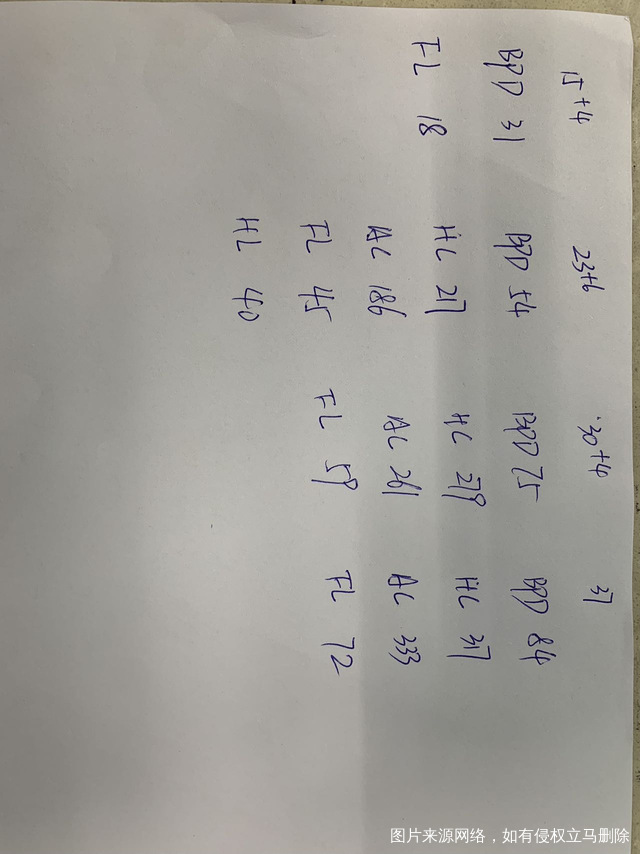 15+4
BPD 31
FL 18
23+6
BPD 54
HC 217
AC 186
FL 45
HL 40
30+4
BPD 75
HC 279
AC 261
FL 59
37
BPD 84
HC 317
AC 333
FL 72
图片来源网络，如有侵权立马删除